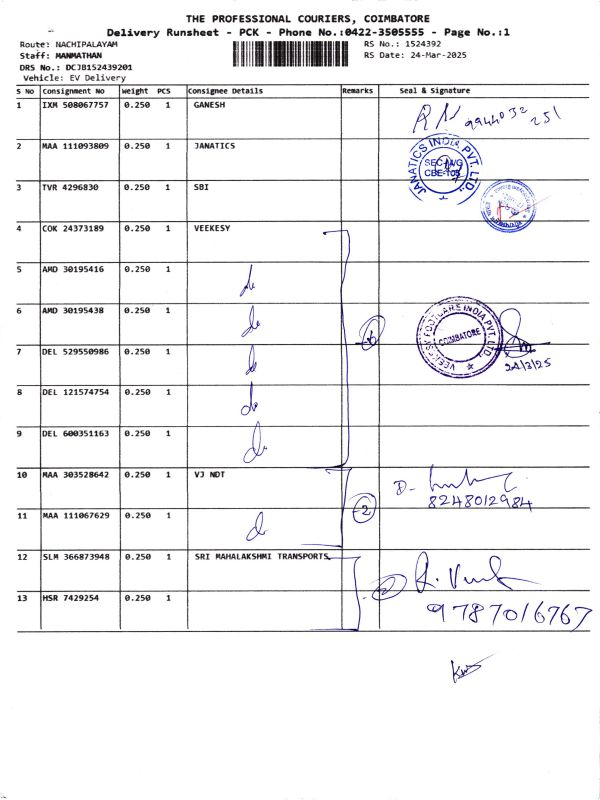 THE PROFESSIONAL COURIERS, COIMBATORE
Delivery Runsheet - PCK - Phone No.:0422-3505555 - Page No.:1
Route: NACHIPALAYAM
RS No.: 1524392
Staff: MANMATHAN
RS Date: 24-Mar-2025
DRS No.: DCJB152439201
Vehicle: EV Delivery
S No Consignment No Weight PCS Consignee Details Remarks Seal & Signature
1 IXM 508067757 0.250 1 GANESH
9944032251
2 MAA 111093809 0.250 1 JANATICS
JANATICS INDIA PVT. LTD.
CBE-105
3 TVR 4296830 0.250 1 SBI
4 COK 24373189 0.250 1 VEEKESY
5 AMD 30195416 0.250 1 do
6 AMD 30195438 0.250 1 do
6
VEEKESY FOOTCARE INDIA PVT. LTD.
COIMBATORE
7 DEL 529550986 0.250 1 do
24/3/25
8 DEL 121574754 0.250 1 do
9 DEL 600351163 0.250 1 do
10 MAA 303528642 0.250 1 VJ NDT
8248012984
11 MAA 111067629 0.250 1 do
2
12 SLM 366873948 0.250 1 SRI MAHALAKSHMI TRANSPORTS
2
13 HSR 7429254 0.250 1
9787016767